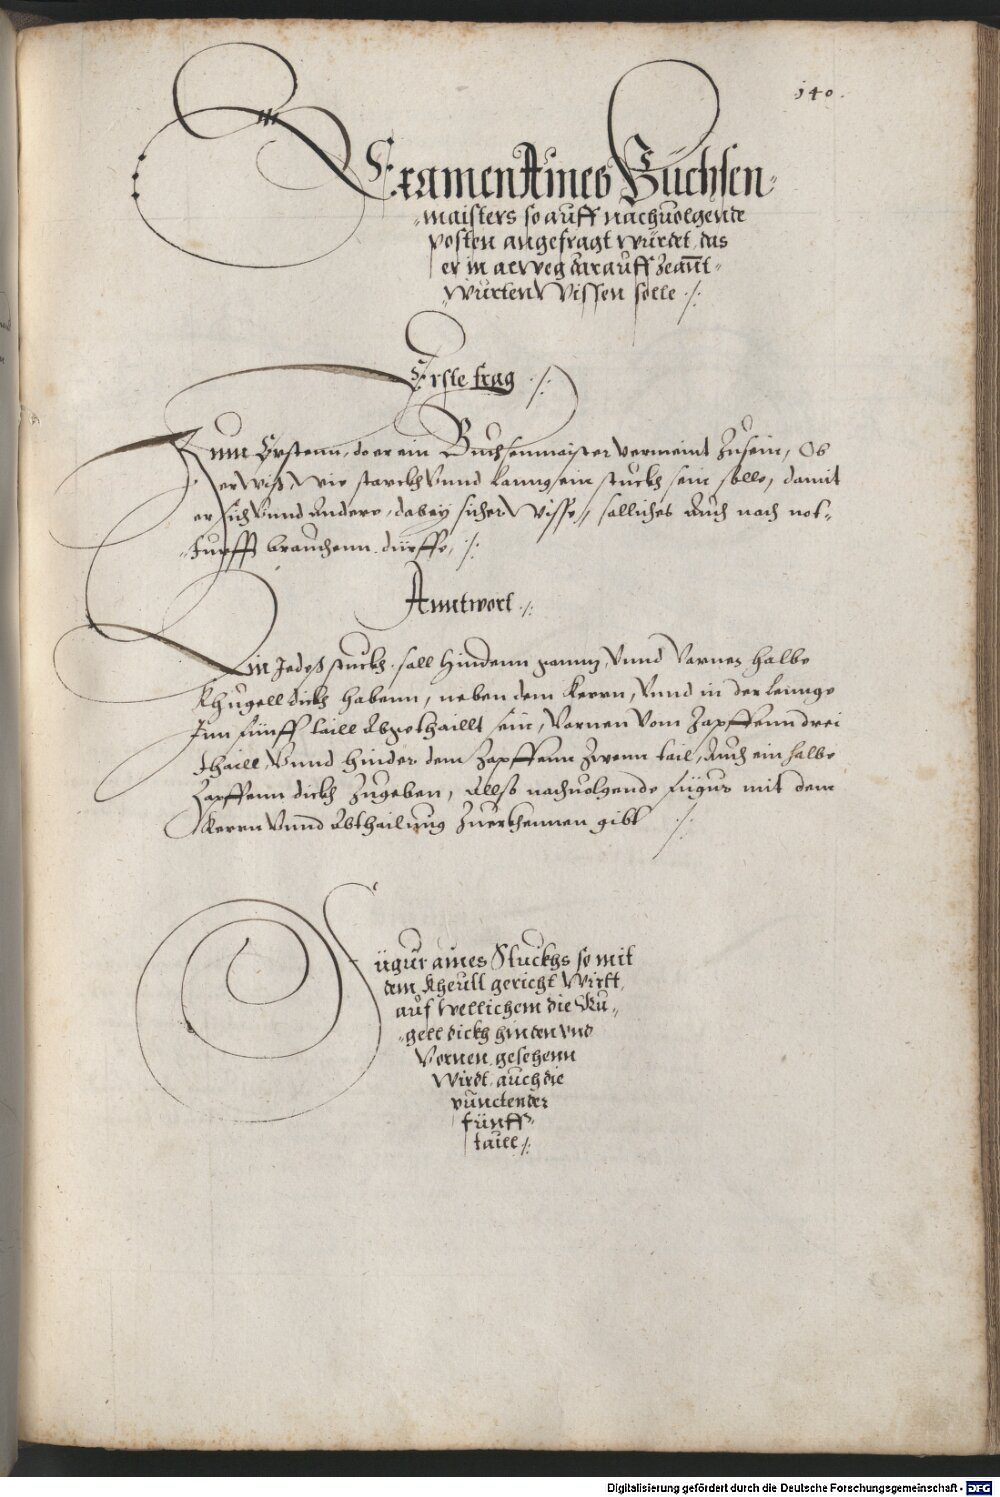 140.
Examen Aines Büchsen-
maisters so auff nachuolgende
posten angefragt würdt, das
er in alweg darauff zeannt-
wurten Wissen solle ·/.
Erste frag ·/.
Zum Ersten, do er ein Buchsenmaister vermeint Zusein, Ob
er Wiß, Wie starckh Vnnd lanng sein stuckh sein solle, damit
er sich Vnnd Andere, dabey sicher Wisse, solliches Auch nach not-
turfft brauchenn dürffe, ·/.
Anntwort ·/.
Ein Jedeß stuckh, soll Hindenn ganntz, Vnnd Vornen halbe
Khugell dickh habenn, neben dem Kernn, Vnnd in der lennge
Inn fünff taill Abgethaillt sein, Vornen Vom Zapffenn drei
thaill, Vnnd hinder dem Zapffenn Zwenn tail, Auch ein halbe
Zapffenn dickh Zugeben, Allß nachuolgende Fügur mit dem
Kernn Vnnd Abthailung Zuerkhennen gibt ·/.
Fügur aines Stuckhs so mit
dem Kheull gericht Wirtt,
auf Wellichem die Ku-
gell dickh hinden vnd
Vornen gesehenn
Wirdt, auch die
puncten der
fünff
taill ·/.
Digitalisierung gefördert durch die Deutsche Forschungsgemeinschaft - DFG